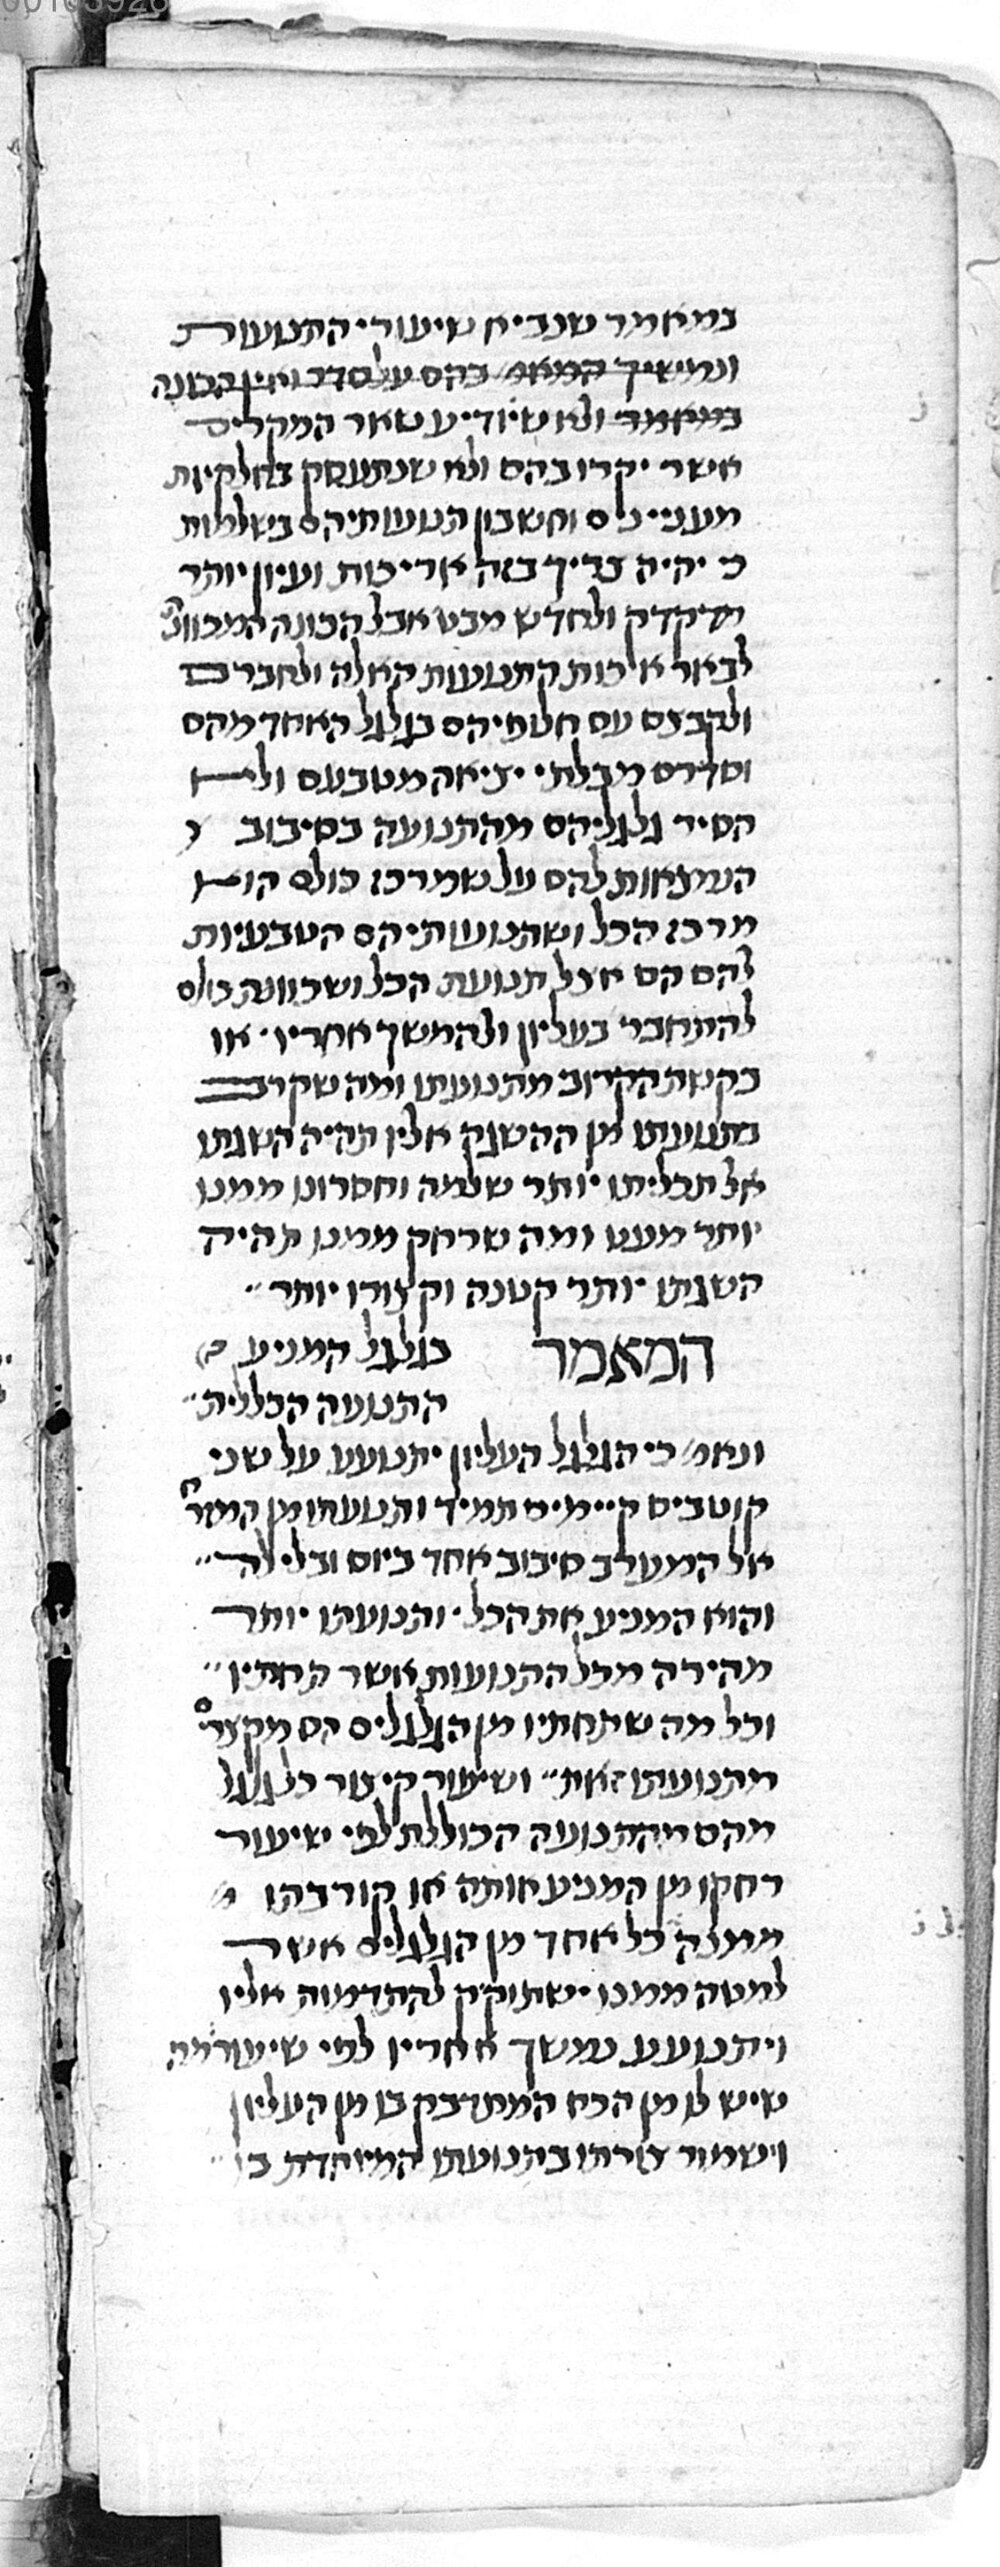 00103926
במאמר שנביא שיעורי התנועות
ונמשיך המאמ' בהם על סדר ואין הכונה
במאמר ולא שיודיע שאר המקרים
אשר יקרו בהם ולא שנתעסק בחלקיות
מענייניס וחשבון תנועותיהם בשלמות
כי יהיה צריך בזה אריכות ועיון יותר
מדקדק ולחדש מבט אבל הכונה המכוונ'
לבאר איכות התנועות האלה ולחברם
ולקבצם עם חלופיהם בגלגל האחד מהם
וסדרם מבלתי יציאה מטבעם ולא
הסיר גלגליהם מהתנועה בסיבוב
הנמצאות להם על שמרכז כולם הוא
מרכז הכל ושתנועותיהם הטבעיות
להם הם אצל תנועת הכל ושכוונת כולם
להתחבר בעליון ולהמשך אחריו · או
בקשת הקרוב מתנועתו ומה שקרב
בתנועתו מן ההשגה אליו תהיה השגתו
אל תכליתו יותר שלמה וחסרונו ממנו
יותר מעט ומה שרחק ממנו תהיה
השגתו יותר קטנה וקצורו יותר "
המאמר בגלגל המניע
התנועה הכללית "
ונאמ' כי הגלגל העליון יתנועע על שני
קוטבים קיימים תמיד ותנועתו מן המזר'
אל המערב סיבוב אחד ביום ובלילה "
והוא המניע את הכל · ותנועתו יותר
מהירה מכל התנועות אשר תחתיו "
וכל מה שתחתיו מן הגלגלים הם מקצרי'
מתנועתו זאת " ושיעור קיצור כל גלגל
מהם מהתנועה הכוללת לפי שיעור
רחקו מן המניע אותה או קורבתו
ממנה כל אחד מן הגלגלים אשר
למטה ממנו ישתוקק להתדמות אליו
ויתנועע נמשך אחריו לפי שיעור מה
שיש לו מן הכח המתדבק בו מן העליון
וישמור צורתו בתנועתו המיוחדת בו "